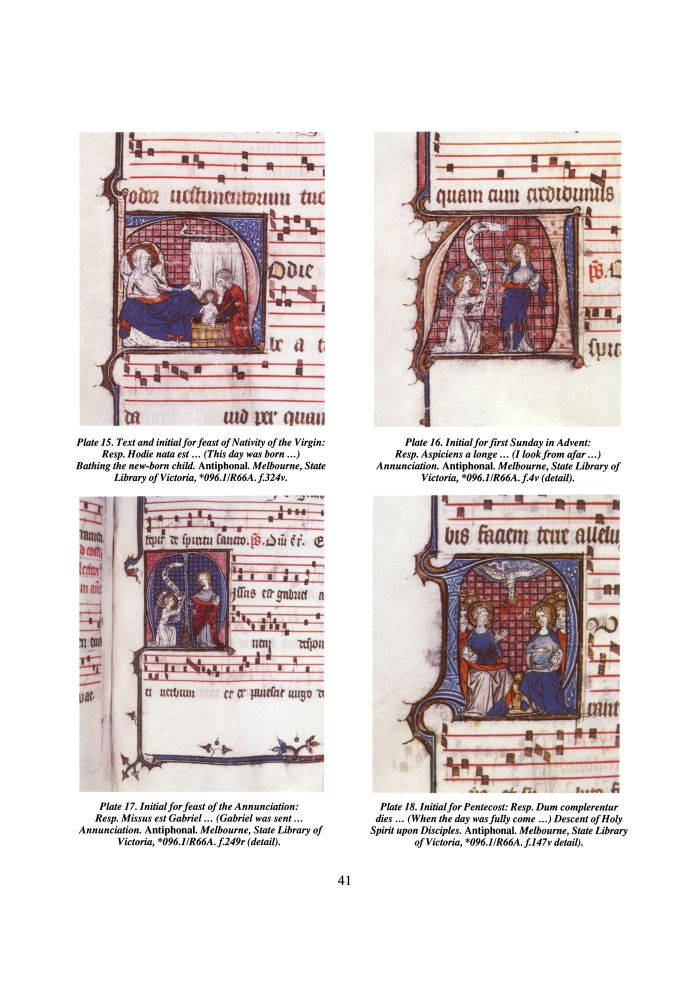 odor uestimentorum tuo
odie
da
uid per quam
Plate 15. Text and initial for feast of Nativity of the Virgin:
Resp. Hodie nata est … (This day was born …)
Bathing the new-born child. Antiphonal. Melbourne, State
Library of Victoria, *096.1/R66A. f.324v.
quam cum credidimus
Plate 16. Initial for first Sunday in Advent:
Resp. Aspiciens a longe … (I look from afar …)
Annunciation. Antiphonal. Melbourne, State Library of
Victoria, *096.1/R66A. f.4v (detail).
spiritu sancto.
issus est gabriel a
uerbum
Plate 17. Initial for feast of the Annunciation:
Resp. Missus est Gabriel … (Gabriel was sent …
Annunciation. Antiphonal. Melbourne, State Library of
Victoria, *096.1/R66A. f.249r (detail).
bis faciem terre allelu
Plate 18. Initial for Pentecost: Resp. Dum complerentur
dies … (When the day was fully come …) Descent of Holy
Spirit upon Disciples. Antiphonal. Melbourne, State Library
of Victoria, *096.1/R66A. f.147v detail).
41